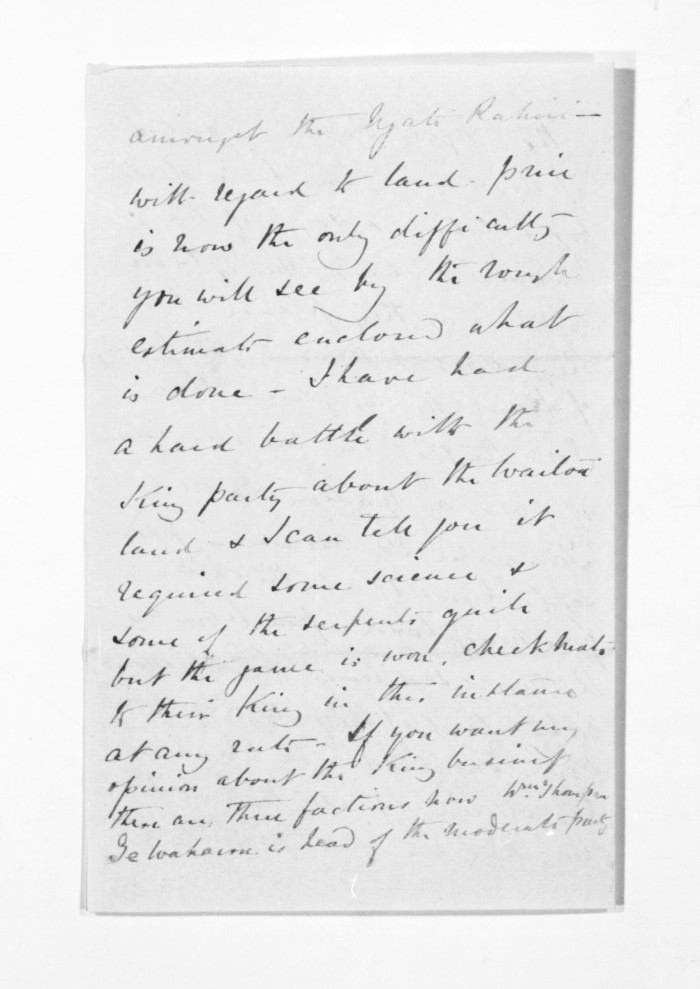 amongst the Ngati Rahiri —
with regard to land. price
is now the only difficulty
you will see by the rough
estimate enclosed what
is done – I have had
a hard battle with the
King party about the Wailoa
land & I can tell you it
required some science &
some of the serpents guile
but the game is won. check mate
to their King in this instance
at any rate – If you want my
opinion about the King business
there are three factions now Wm. Thompson
Te Waharoa is head of the moderate party